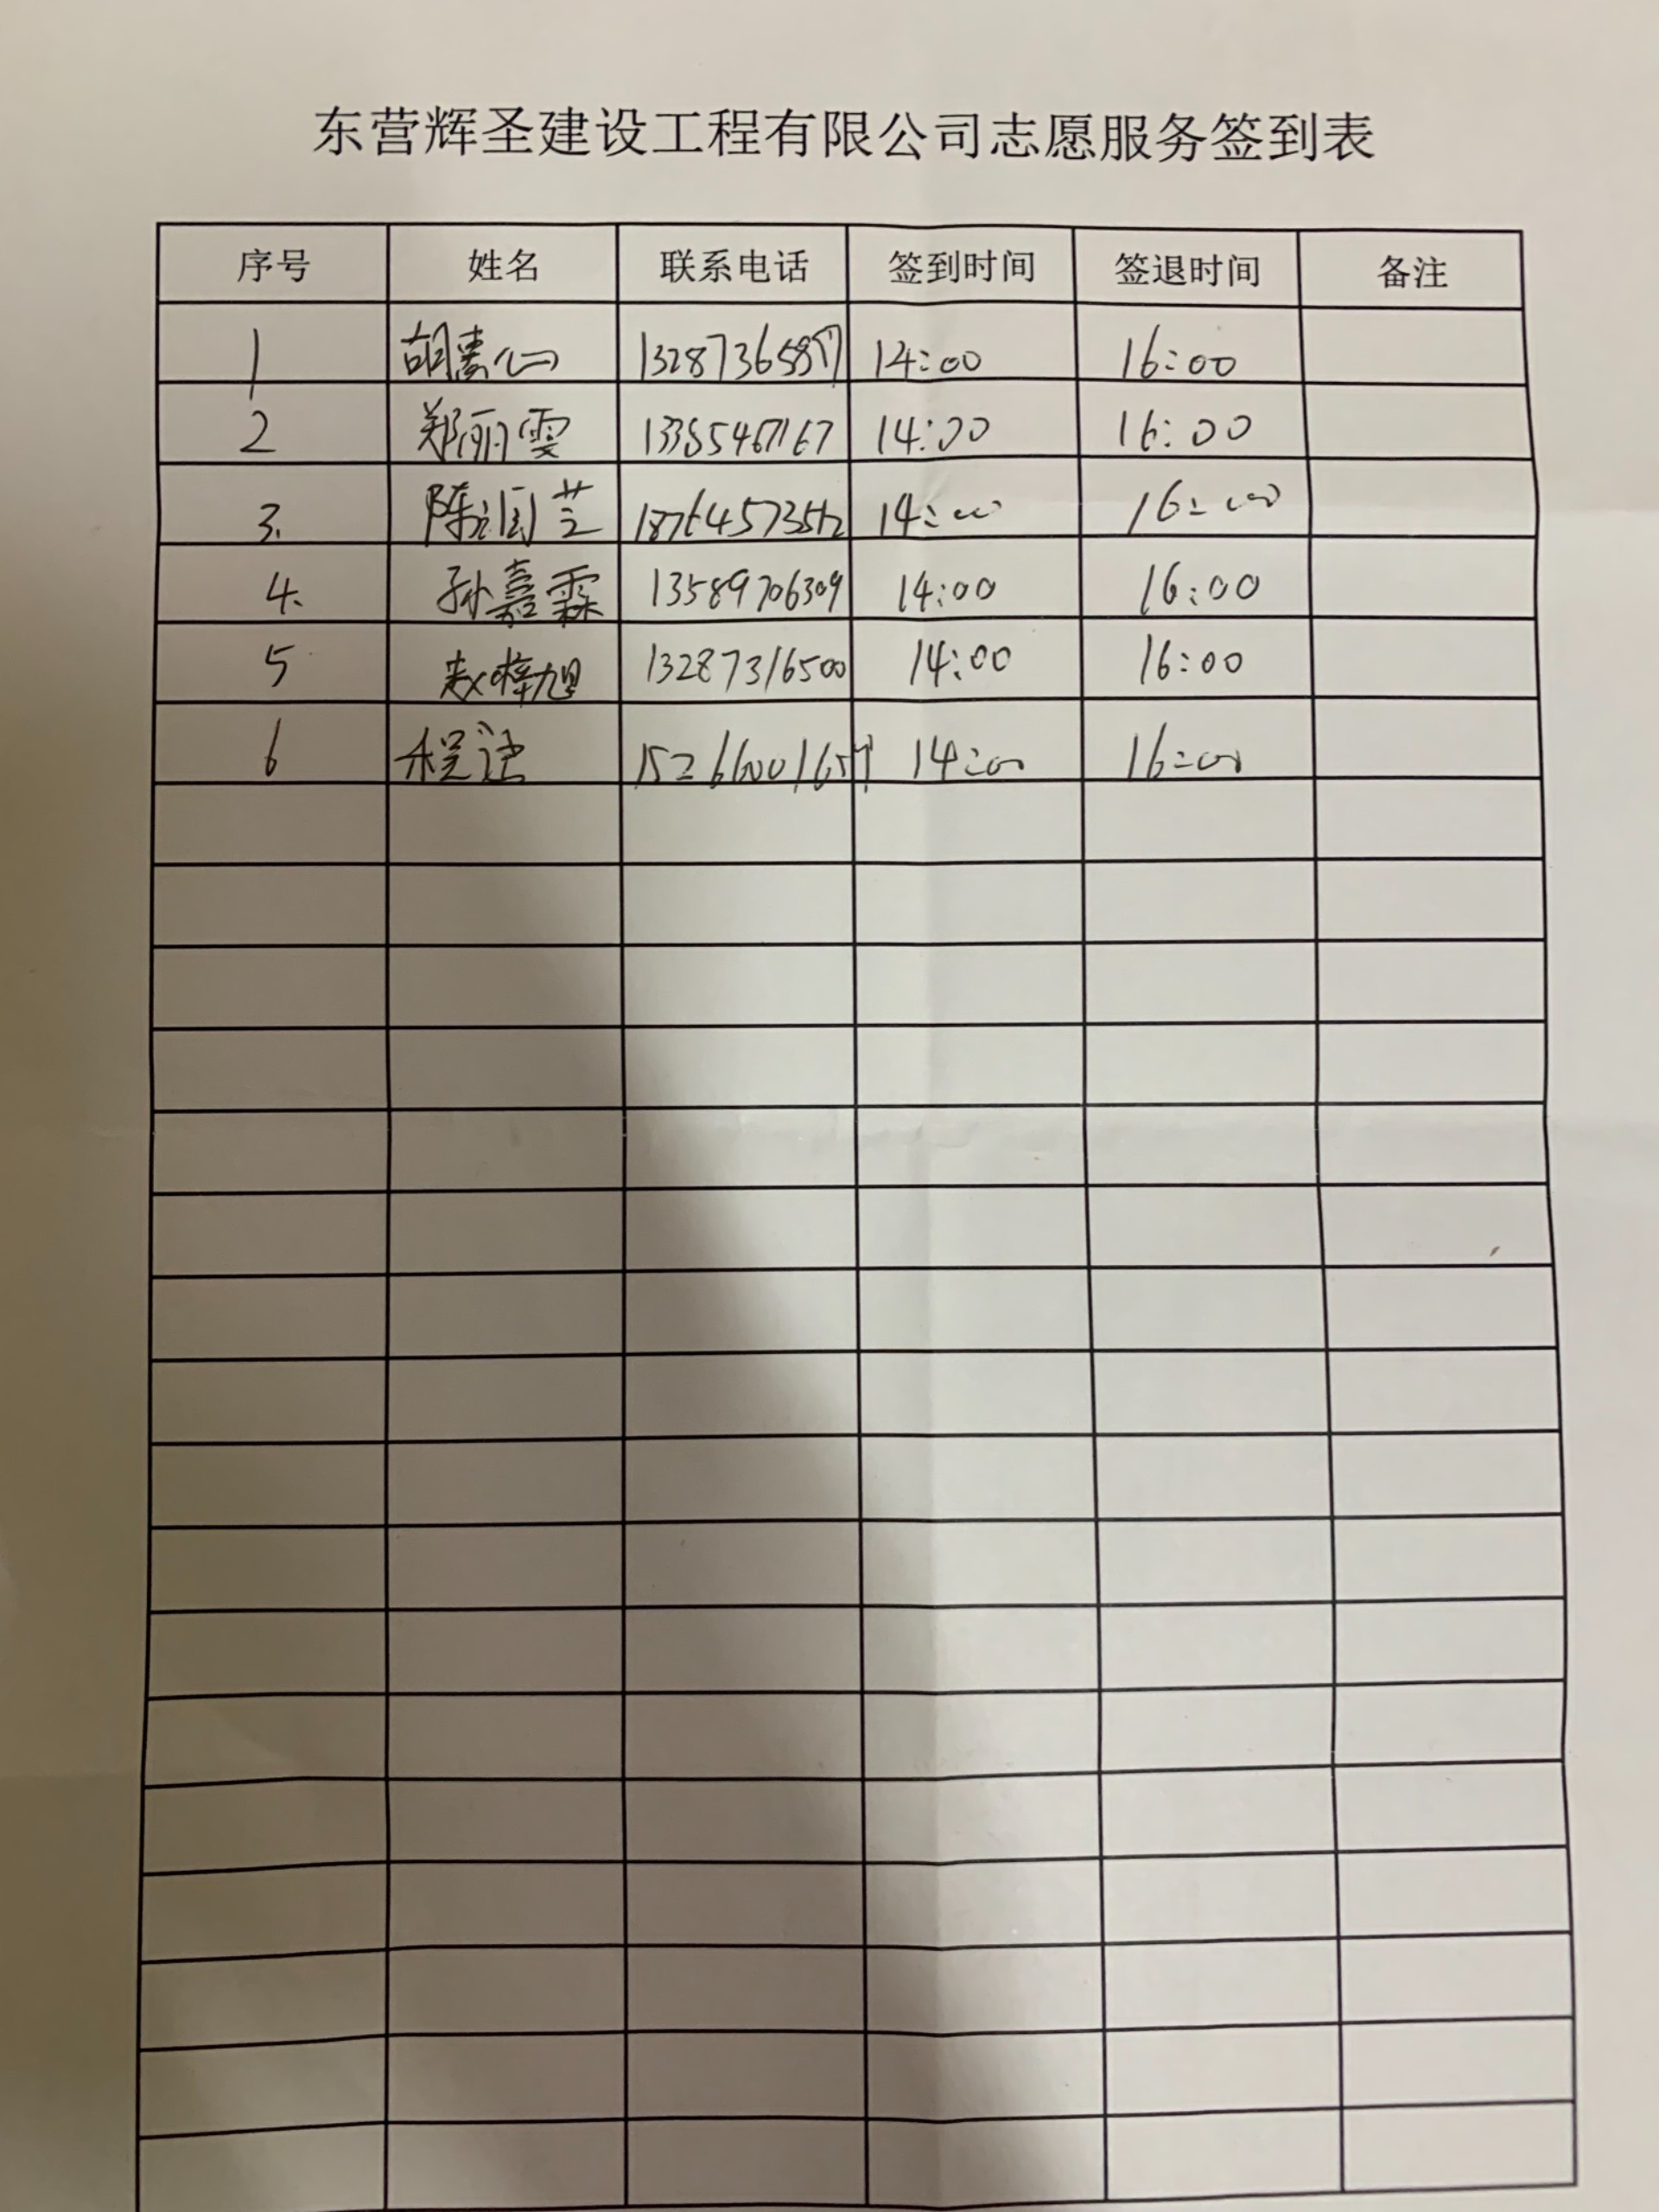 东营辉圣建设工程有限公司志愿服务签到表
序号 姓名 联系电话 签到时间 签退时间 备注
1 14:00 16:00
2 郑丽雯 13385467167 14:00 16:00
3. 陈润芝 18764573512 14:00 16:00
4. 孙嘉霖 13589706309 14:00 16:00
5 赵梓旭 13287316500 14:00 16:00
6 14:00 16:00